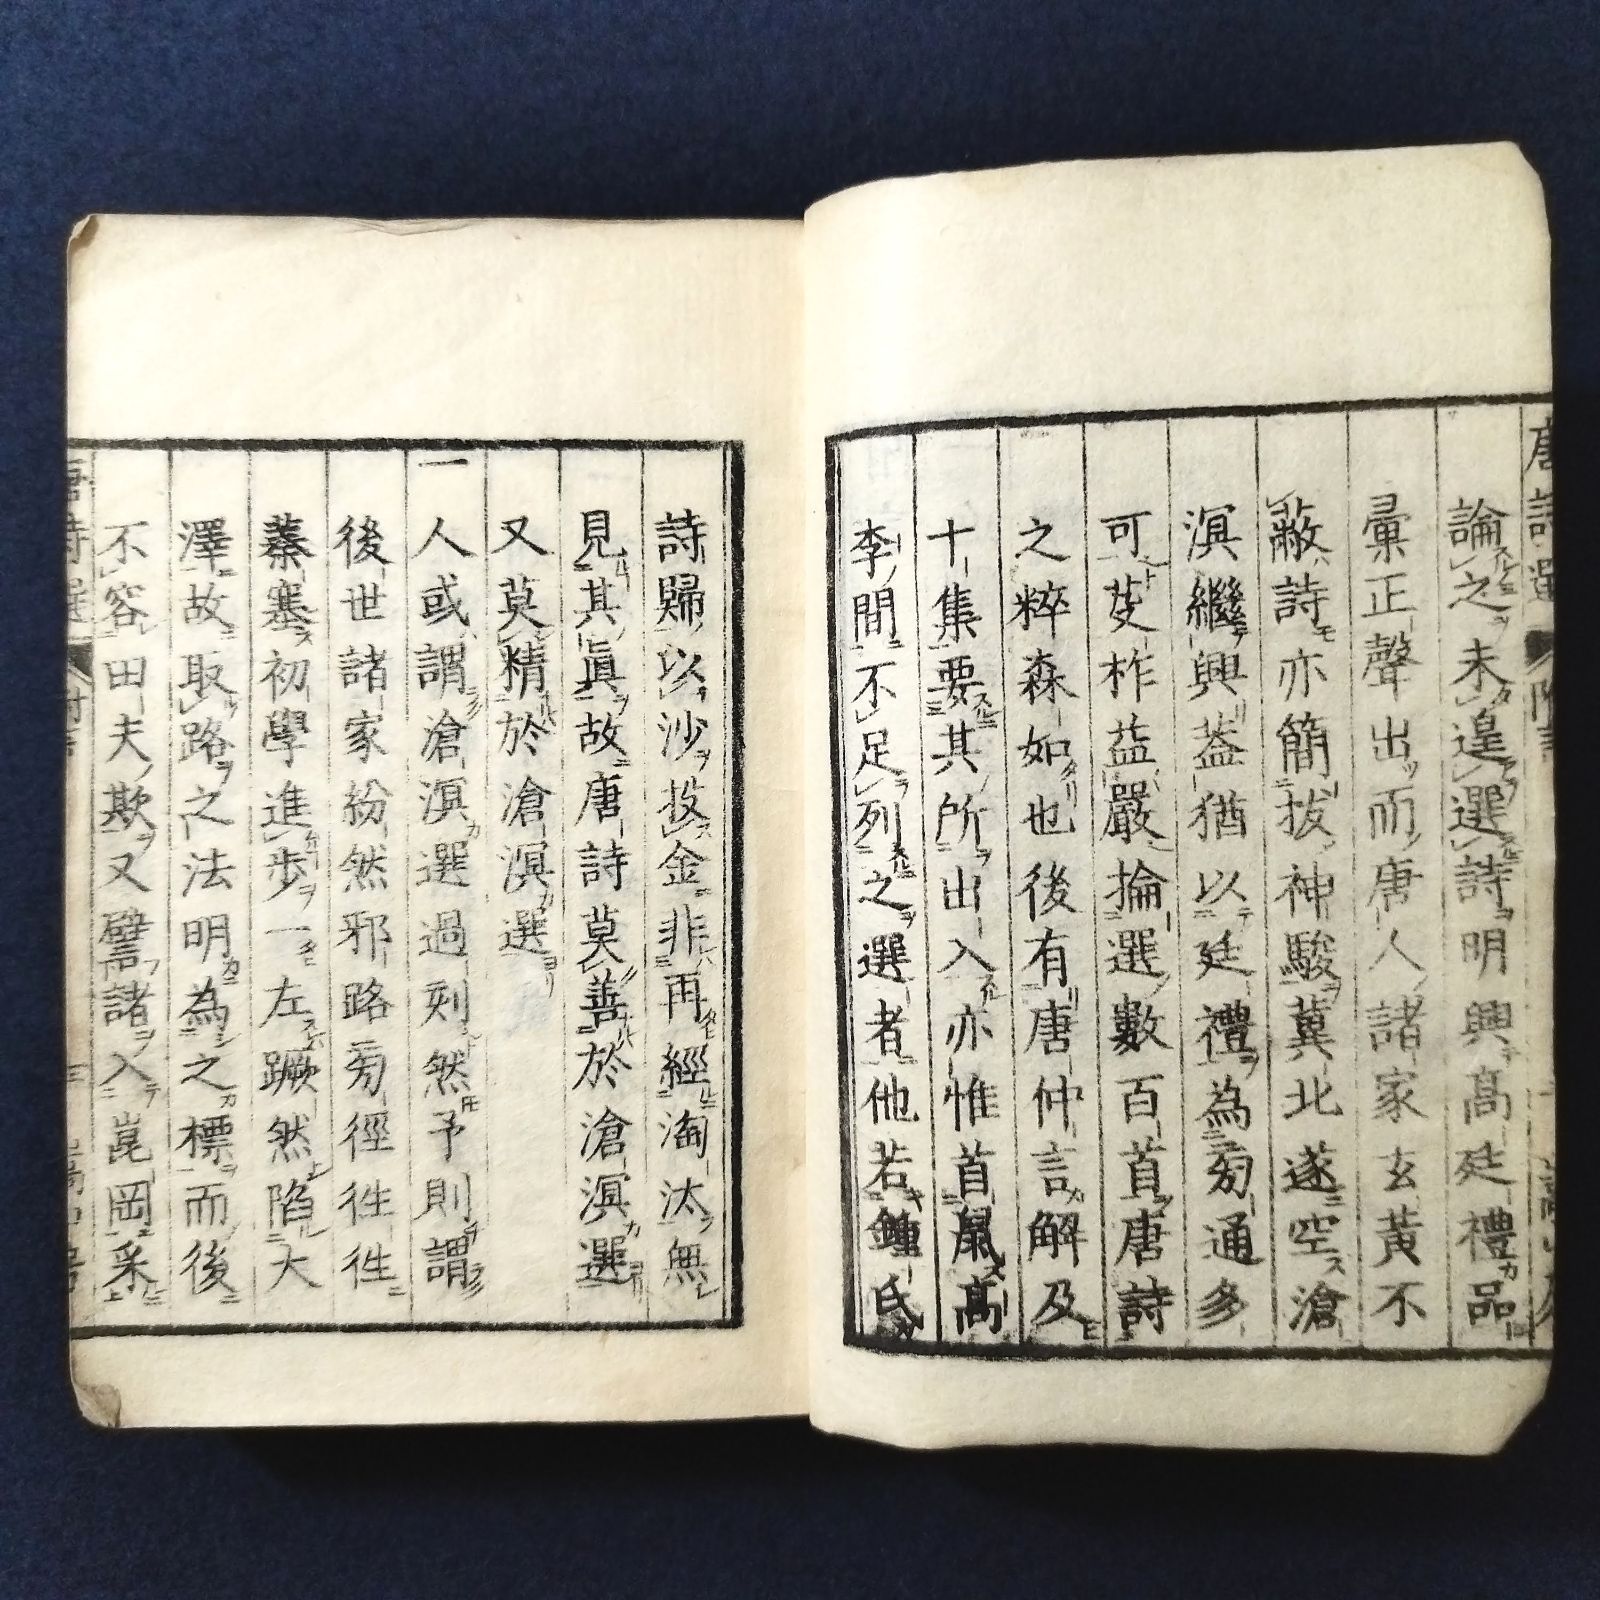 論之未遑選詩明興高廷禮品
彙正聲出而唐人諸家玄黃不
蔽詩亦簡拔神駿冀北遂空滄
溟繼興蓋猶以廷禮為旁通多
可芟柞益嚴掄選數百首唐詩
之粹森如也後有唐仲言解及
十集要其所出入亦惟首鼠高
李間不足列之選者他若鍾氏
詩歸以沙投金非再經淘汰無
見其真故唐詩莫善於滄溟選
又莫精於滄溟選
一
人或謂滄溟選過刻然予則謂
後世諸家紛然邪路旁徑徃徃
蓁塞初學進步一左蹶然陷大
澤故取路之法明為之標而後
不容田夫欺又譬諸入崑岡采
唐詩選 附言